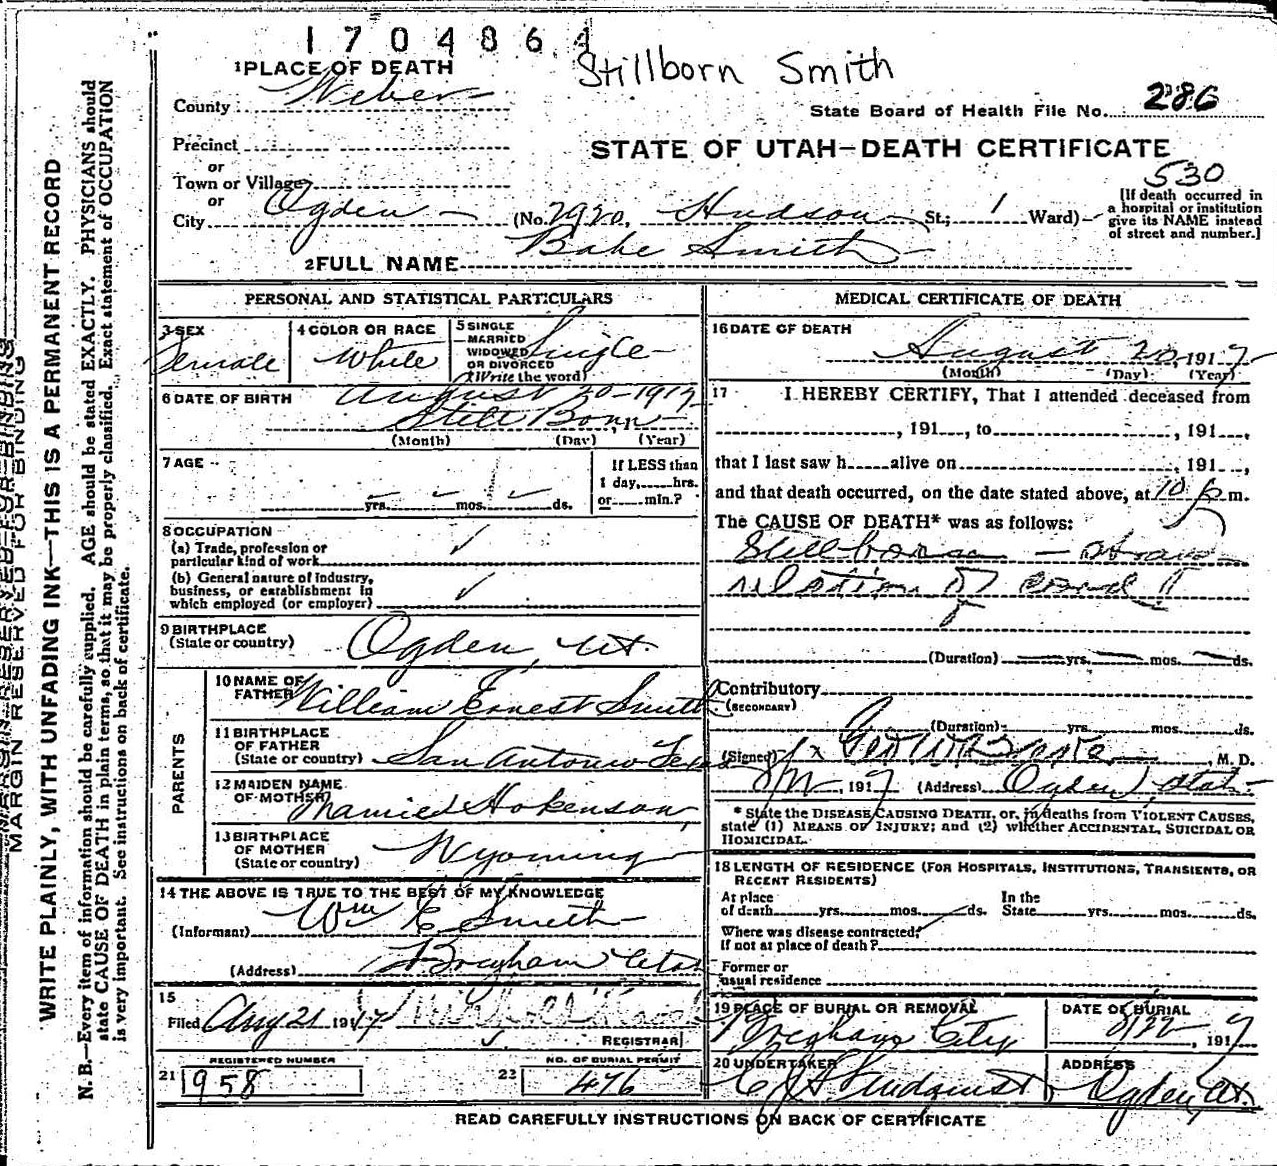 1704864
Stillborn Smith
1 PLACE OF DEATH
County Weber
State Board of Health File No. 286
Precinct
or
Town or Village
or
City Ogden (No. 2920, Hudson St.; 1 Ward)
STATE OF UTAH—DEATH CERTIFICATE
530
[If death occurred in
a hospital or institution
give its NAME instead
of street and number.]
2 FULL NAME Babe Smith
PERSONAL AND STATISTICAL PARTICULARS
3 SEX
Female
4 COLOR OR RACE
White
5 SINGLE
MARRIED
WIDOWED
OR DIVORCED
(Write the word)
Single
6 DATE OF BIRTH August 20-1917
Still Born
(Month) (Day) (Year)
7 AGE
yrs. mos. ds.
If LESS than
1 day, hrs.
or min.?
8 OCCUPATION
(a) Trade, profession or
particular kind of work
(b) General nature of industry,
business, or establishment in
which employed (or employer)
9 BIRTHPLACE
(State or country) Ogden, Ut.
PARENTS
10 NAME OF
FATHER William Ernest Smith
11 BIRTHPLACE
OF FATHER
(State or country) San Antonio Texas
12 MAIDEN NAME
OF MOTHER Mamie Hokenson
13 BIRTHPLACE
OF MOTHER
(State or country) Wyoming
14 THE ABOVE IS TRUE TO THE BEST OF MY KNOWLEDGE
(Informant) Wm E Smith
(Address) Brigham Utah
15
Filed Aug 21 1917
REGISTRAR
REGISTERED NUMBER
21 958
NO. OF BURIAL PERMIT
22 476
MEDICAL CERTIFICATE OF DEATH
16 DATE OF DEATH
August 20, 1917
(Month) (Day) (Year)
17 I HEREBY CERTIFY, That I attended deceased from
, 191 , to , 191 ,
that I last saw h alive on , 191 ,
and that death occurred, on the date stated above, at 10 p m.
The CAUSE OF DEATH* was as follows:
Stillborn — stran-
ulation of cord
(Duration) yrs. mos. ds.
Contributory
(SECONDARY)
(Duration) yrs. mos. ds.
(Signed) , M. D.
, 1917 (Address) Ogden, Utah
* State the DISEASE CAUSING DEATH, or, in deaths from VIOLENT CAUSES,
state (1) MEANS OF INJURY; and (2) whether ACCIDENTAL, SUICIDAL OR
HOMICIDAL.
18 LENGTH OF RESIDENCE (FOR HOSPITALS, INSTITUTIONS, TRANSIENTS, OR
RECENT RESIDENTS)
At place
of death yrs. mos. ds.
In the
State yrs. mos. ds.
Where was disease contracted,
if not at place of death?
Former or
usual residence
19 PLACE OF BURIAL OR REMOVAL
Brigham City
DATE OF BURIAL
8/22 , 1917
20 UNDERTAKER
ADDRESS
Ogden Ut.
READ CAREFULLY INSTRUCTIONS ON BACK OF CERTIFICATE
MARGIN RESERVED FOR BINDING
WRITE PLAINLY, WITH UNFADING INK—THIS IS A PERMANENT RECORD
N. B.—Every item of information should be carefully supplied. AGE should be stated EXACTLY. PHYSICIANS should
state CAUSE OF DEATH in plain terms, so that it may be properly classified. Exact statement of OCCUPATION
is very important. See instructions on back of certificate.